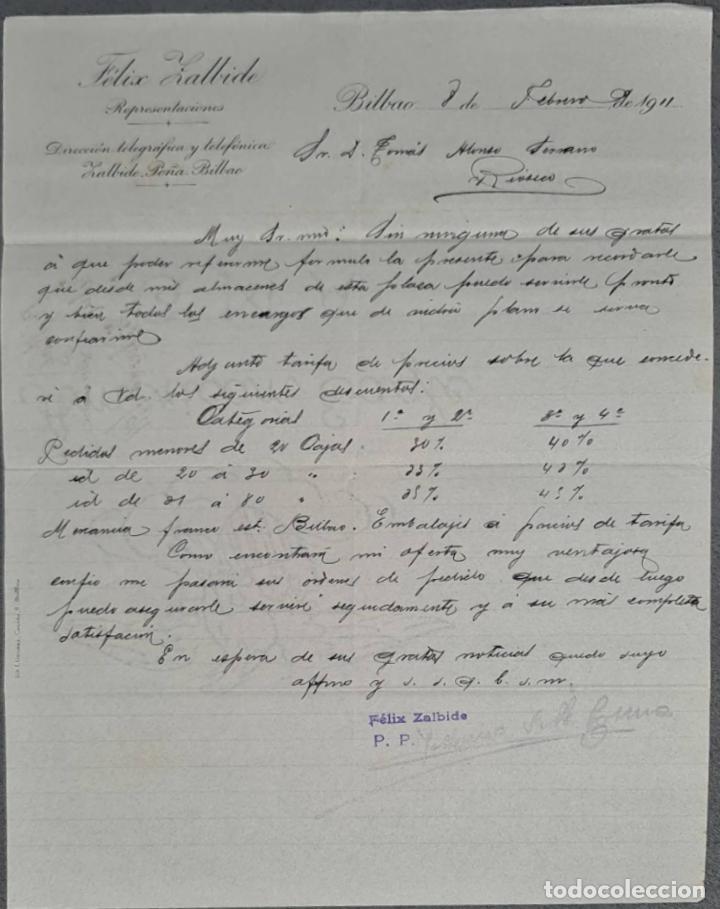 Félix Zalbide
Representaciones
Dirección telegráfica y telefónica
Zalbide-Peña-Bilbao
Bilbao 8 de Febrero de 1911
Sr. D. Tomás Alonso Serrano
Rioseco
Muy Sr. mio: Sin ninguna de sus gratas
á que poder referirme formulo la presente para recordarle
que desde mis almacenes de esta plaza puedo servirle pronto
y bien todos los encargos que de vidrio plano se sirva
confiarme
Adjunto tarifa de precios sobre la que concede-
ré á Vd. los siguientes descuentos:
Categorias 1ª y 2ª 3ª y 4ª
Pedidos menores de 20 Cajas: 30% 40%
id de 20 á 30 " : 33% 43%
id de 31 á 80 " : 35% 45%
Mercancia franco est. Bilbao. Embalajes á precios de tarifa
Como encontrará mi oferta muy ventajosa
confio me pasará sus órdenes de pedido que desde luego
puedo asegurarle serviré seguidamente y á su más completa
satisfación.
En espera de sus gratas noticias quedo suyo
affmo y s. s. q. b. s. m.
Félix Zalbide
P. P.
todocoleccion